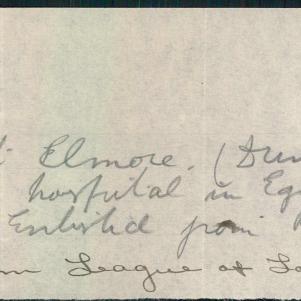 Elmore. (Dun
hospital in Eg
Enlisted from
League at La